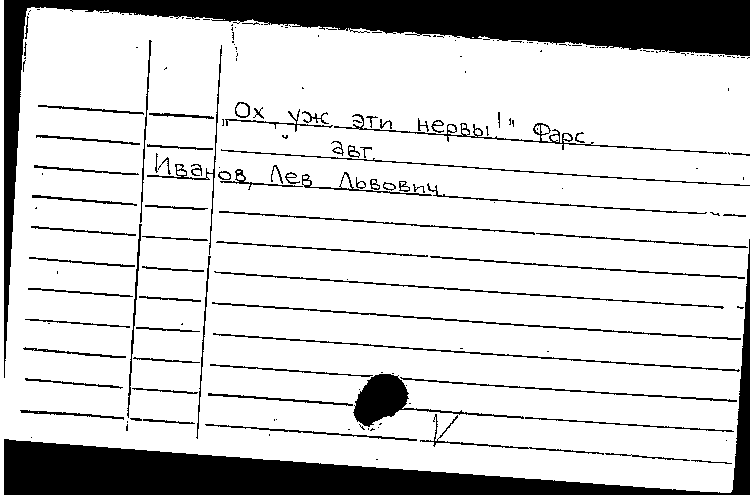 „Ох, уж эти нервы!" Фарс.
авт.
Иванов, Лев Львович.